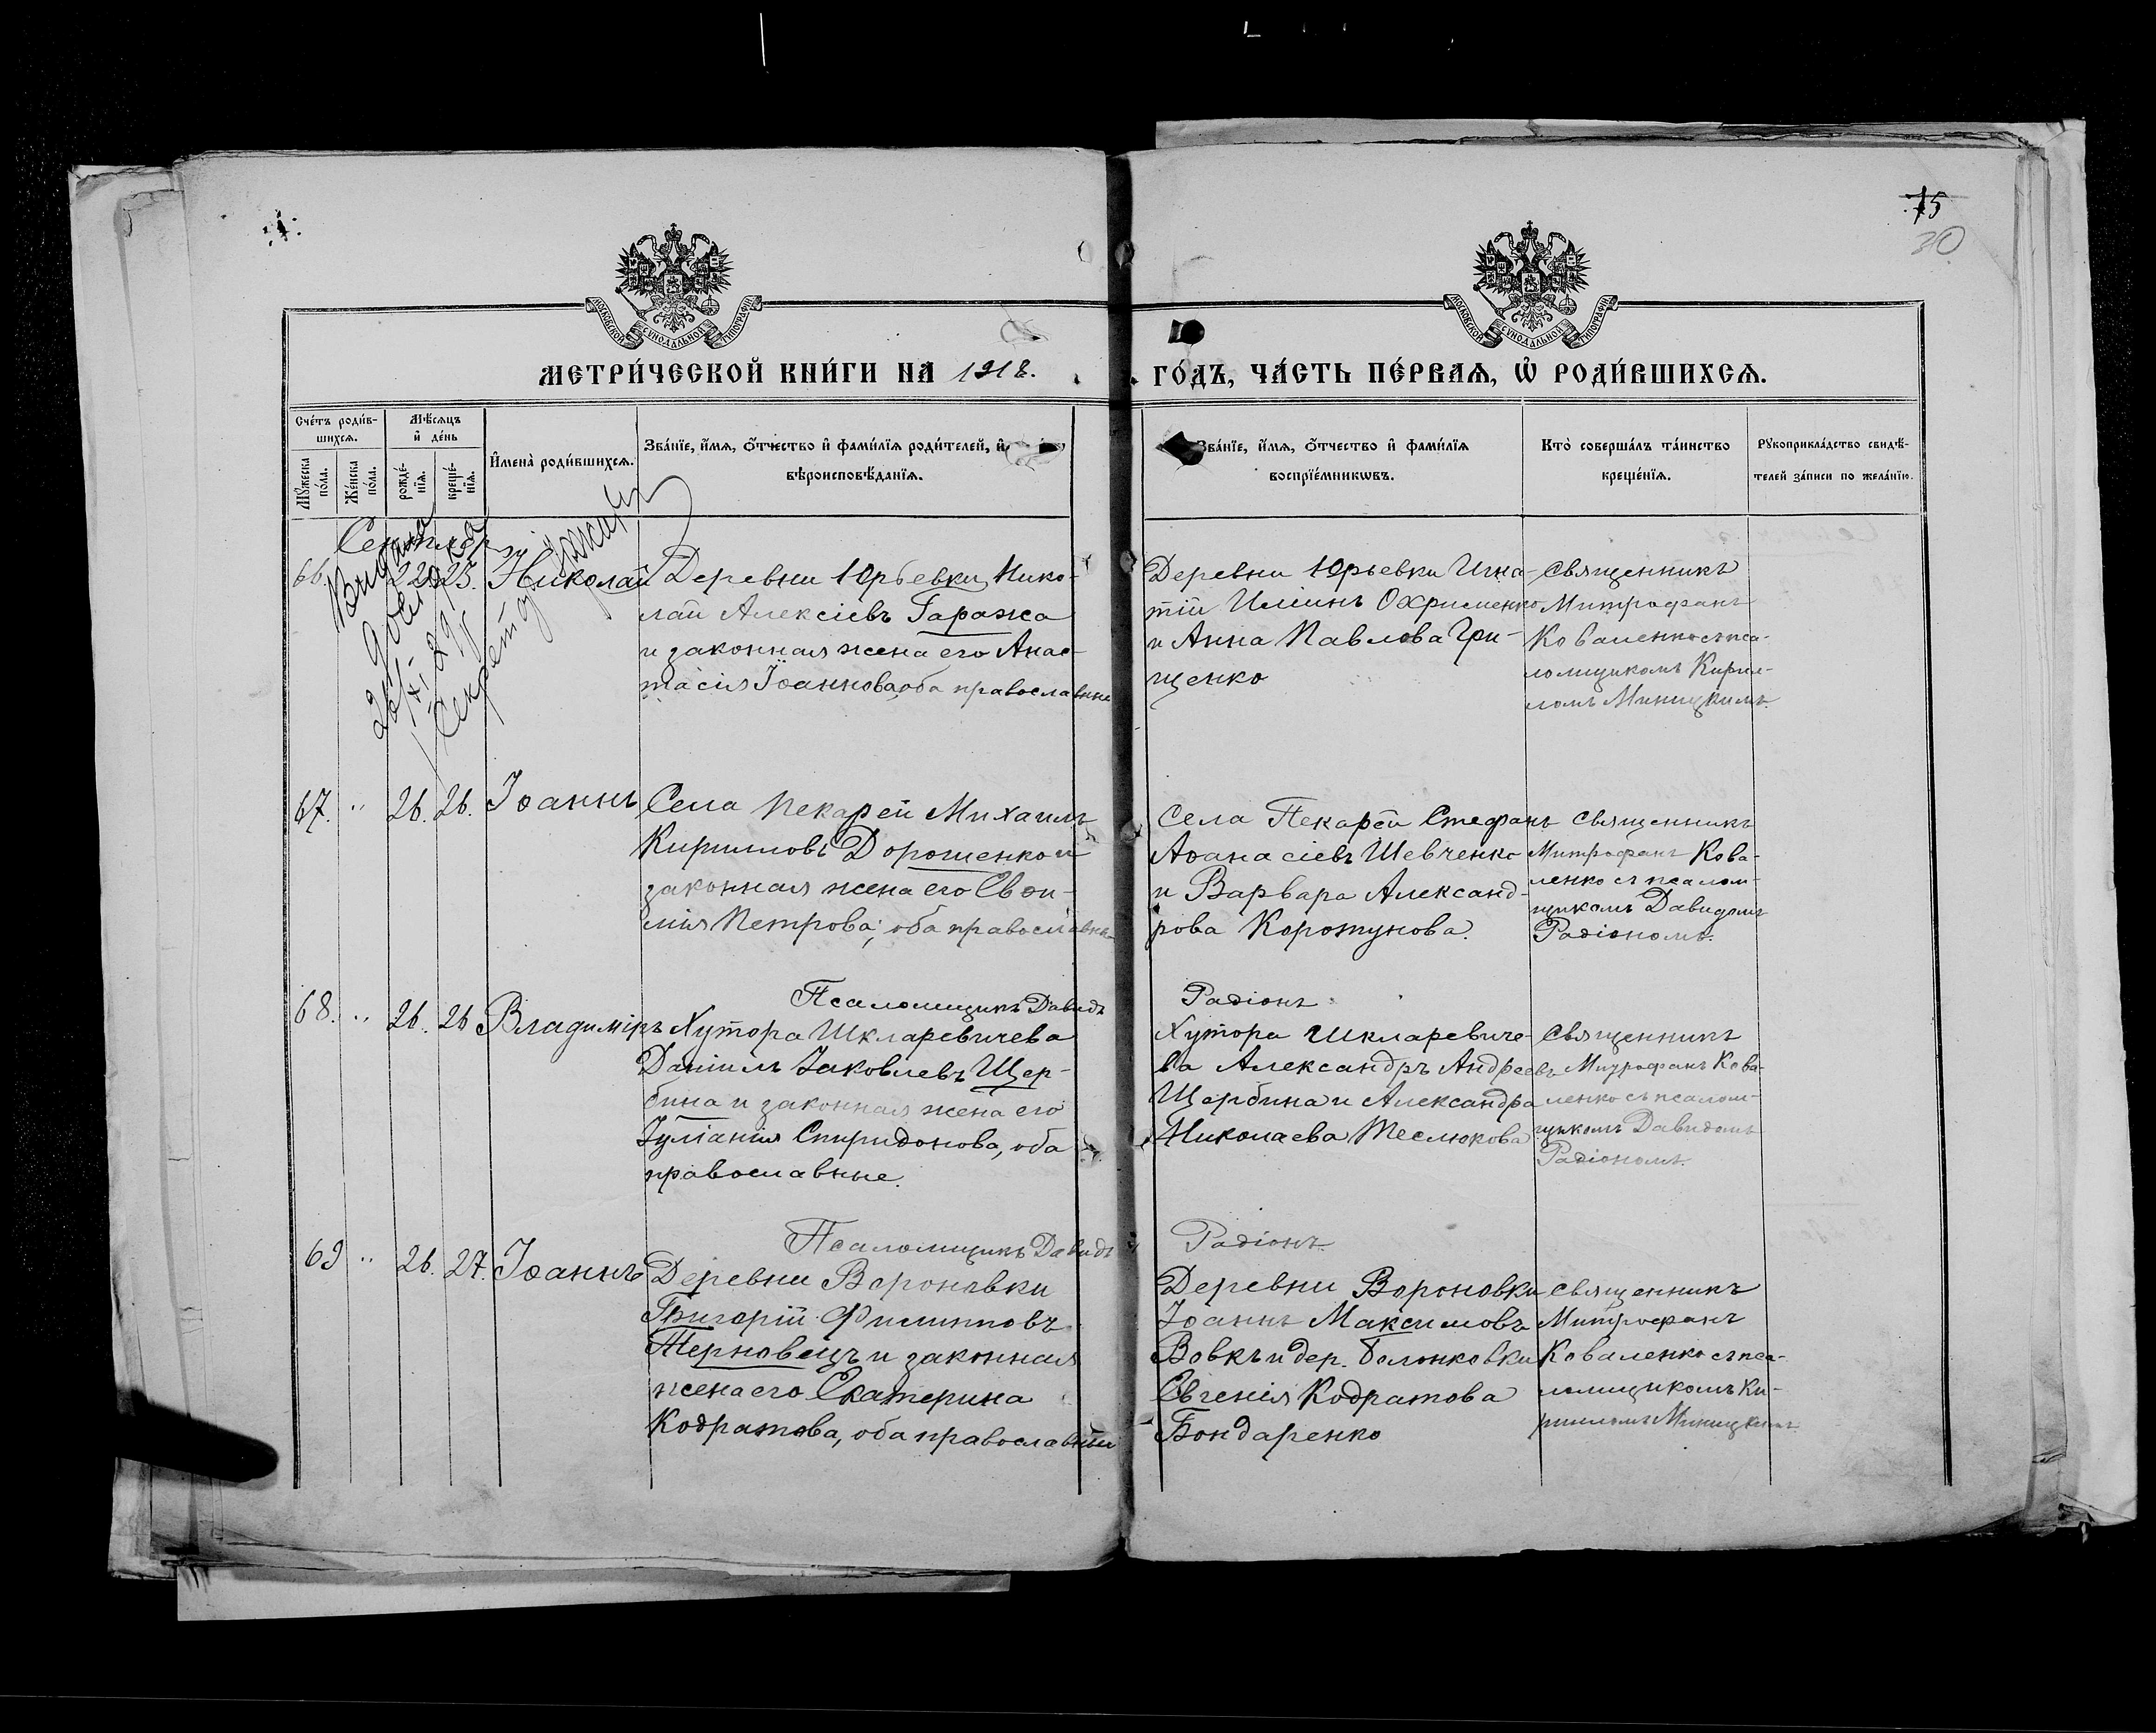 75
30
МОСКОВСКОЙ СѴНОДАЛЬНОЙ ТИПОГРАФІИ
МОСКОВСКОЙ СѴНОДАЛЬНОЙ ТИПОГРАФІИ
МЕТРИ́ЧЕСКОЙ КНИ́ГИ НА 1918.
ГО́ДЪ, ЧА́СТЬ ПЕ́РВАЯ, Ѡ РОДИ́ВШИХСЯ.
Сче́тъ роди́в-
шихся.
Мѣ́сяцъ
и де́нь
Му́жеска по́ла.
Же́нска по́ла.
рожде́-
нїя.
креще́-
нїя.
Имена̀ роди́вшихся.
Зва́нїе, и́мя, о́тчество и фами́лїя роди́телей, и
вѣроисповѣ́данїя.
Зва́нїе, и́мя, о́тчество и фами́лїя
воспрїе́мниковъ.
Кто̀ соверша́лъ та́инство
креще́нїя.
Рукоприкла́дство свидѣ́-
телей за́писи по жела́нїю.
Сентябрь
66. 22 25. Николай
Деревни Юрьевки Нико-
лай Алексіевъ Гаража
и законная жена его Анас-
тасія Іоаннова, оба православные
Деревни Юрьевки Игна-
тій Иліинъ Охрименко
и Анна Павлова Гри-
щенко
Священникъ
Митрофанъ
Коваленко съ пса-
ломщикомъ Кирил-
ломъ Миницкимъ.
Выдана
26/XI 29
Секретарь
67. " 26. 26. Іоаннъ
Села Пекарей Михаилъ
Кирилловъ Дорошенко и
законная жена его Евфи-
мія Петрова, оба православные
Села Пекарей Стефанъ
Аѳанасіевъ Шевченко
и Варвара Александ-
рова Коротунова.
Священникъ
Митрофанъ Кова-
ленко съ псалом-
щикомъ Давидомъ
Радіономъ.
Псаломщикъ Давидъ Радіонъ
68. " 26. 26 Владиміръ
Хутора Шкларевичева
Даніилъ Іаковлевъ Щер-
бина и законная жена его
Іуліанія Спиридонова, оба
православные.
Хутора Шкларевиче-
ва Александръ Андреевъ
Щербина и Александра
Николаева Теслюкова
Священникъ
Митрофанъ Кова-
ленко съ псалом-
щикомъ Давидомъ
Радіономъ.
Псаломщикъ Давидъ Радіонъ.
69 " 26. 27. Іоаннъ
Деревни Вороновки
Григорій Филипповъ
Терновецъ и законная
жена его Екатерина
Кодратова, оба православные
Деревни Вороновки
Іоаннъ Максимовъ
Вовкъ и дер. Болонковки
Евгенія Кодратова
Бондаренко
Священникъ
Митрофанъ
Коваленко съ пса-
ломщикомъ Ки-
рилломъ Миницкимъ